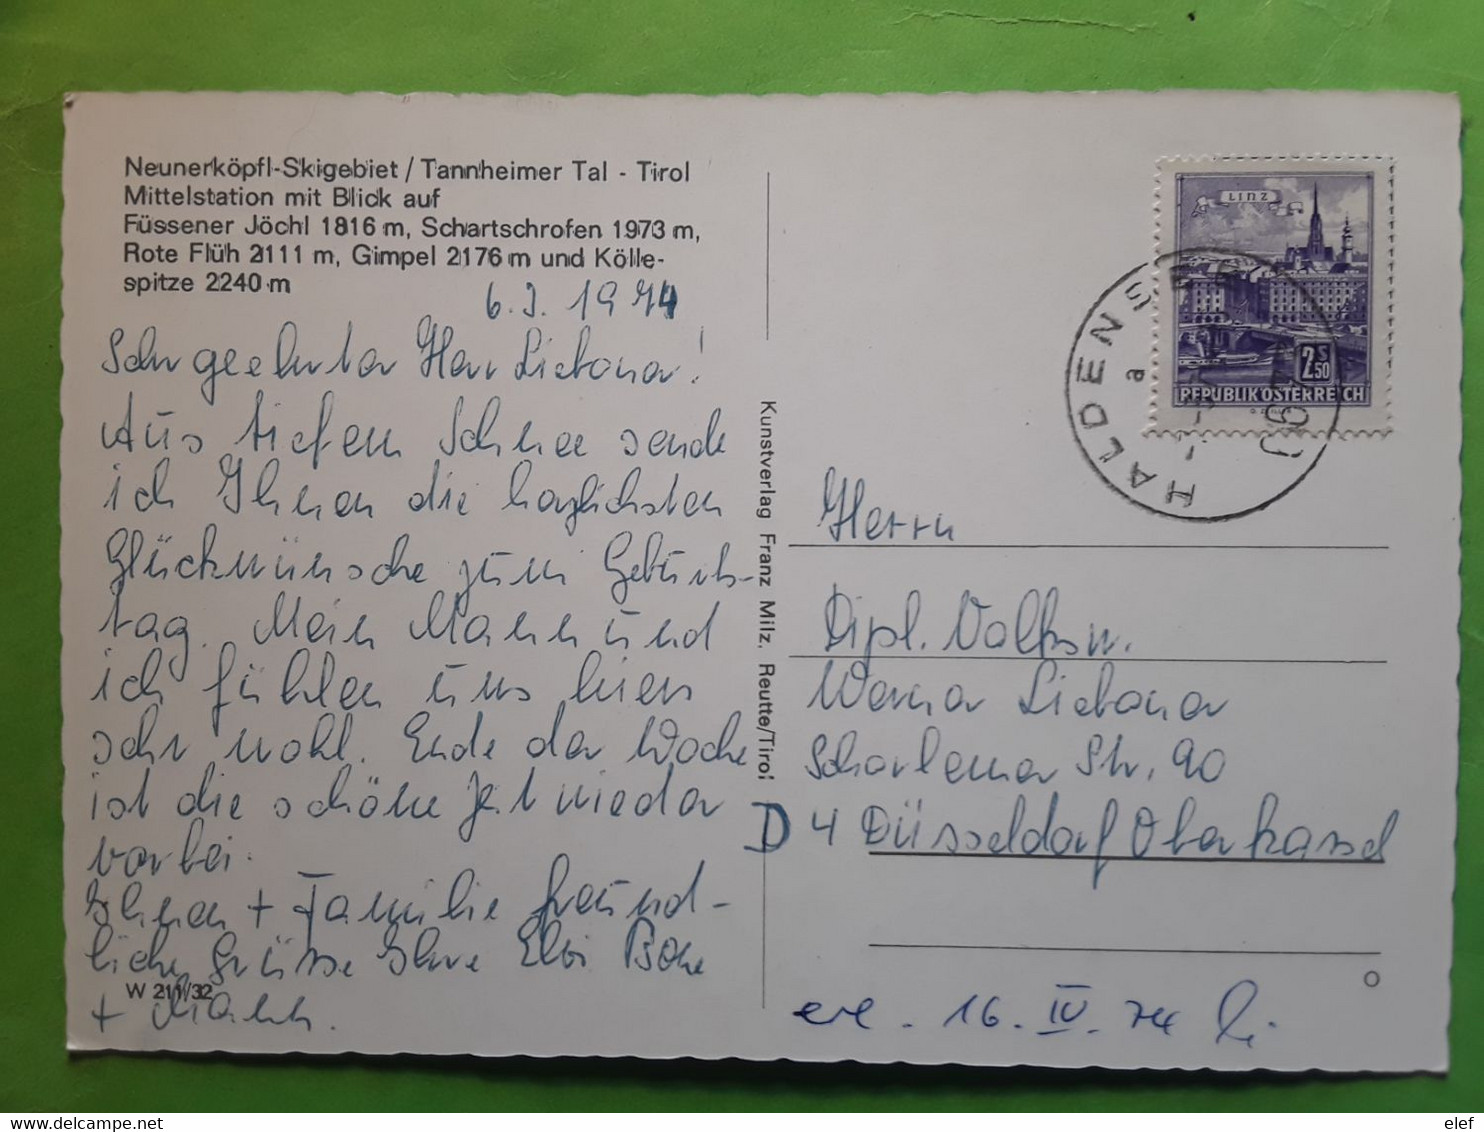 Neunerköpfl-Skigebiet / Tannheimer Tal - Tirol
Mittelstation mit Blick auf
Füssener Jöchl 1816 m, Schartschrofen 1973 m,
Rote Flüh 2111 m, Gimpel 2176 m und Kölle-
spitze 2240 m
6.3.1974
Sehr geehrter Herr Liebona!
Aus tiefem Schnee sende
ich Ihnen die herzlichsten
Glückwünsche zum Geburts-
tag. Mein Mann und
ich fühlen uns hier
sehr wohl. Ende der Woche
ist die schöne Zeit wieder
vorbei.
Ihnen + Familie freund-
liche Grüsse Ihre
+ Mann.
W 211/32
Kunstverlag Franz Milz, Reutte/Tirol
LINZ
2.50 S
REPUBLIK ÖSTERREICH
HALDENSEE
a
Herrn
Dipl. Volksw.
Werner
Str. 90
D 4 Düsseldorf Oberkassel
16. IV. 74
elef